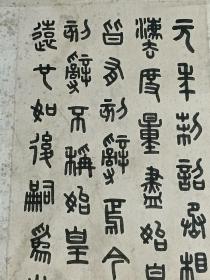 元年制詔丞相
灋度量盡始皇
皆有刻辭焉今
刻辭不稱始皇
遠也如後嗣為